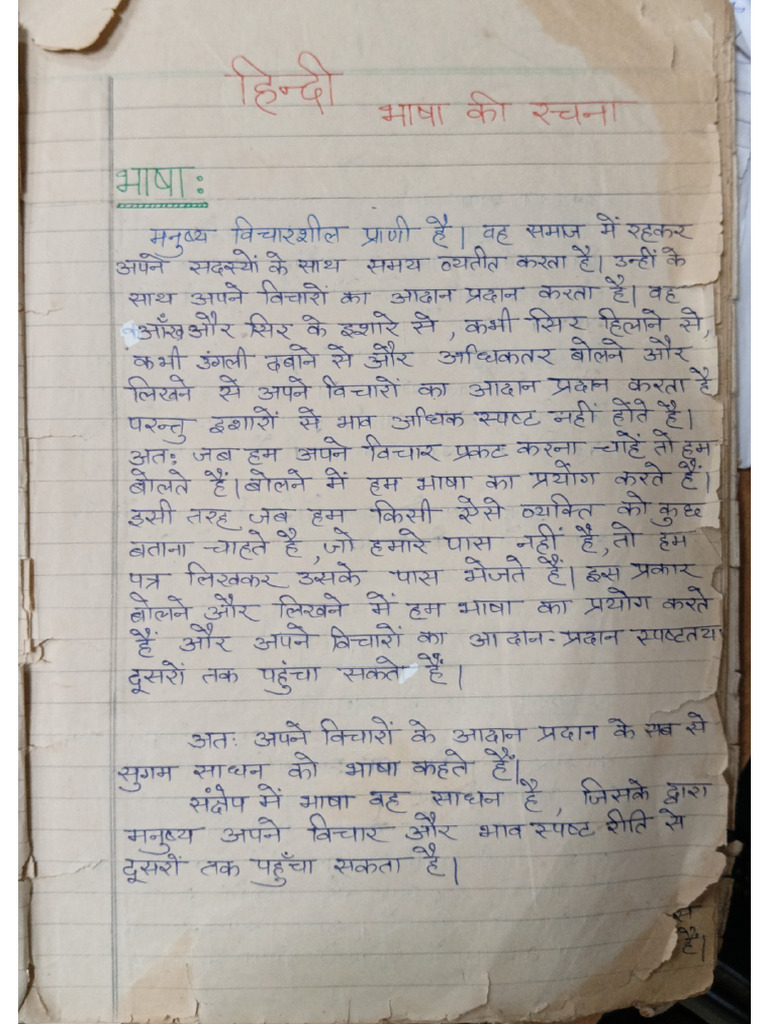 हिन्दी
भाषा की रचना
भाषा:
मनुष्य विचारशील प्राणी है। वह समाज में रहकर
अपने सदस्यों के साथ समय व्यतीत करता है। उन्हीं के
साथ अपने विचारों का आदान प्रदान करता है। वह
आँख और सिर के इशारे से, कभी सिर हिलाने से,
कभी उंगली दबाने से और अधिकतर बोलने और
लिखने से अपने विचारों का आदान प्रदान करता है
परन्तु इशारों से भाव अधिक स्पष्ट नहीं होते है।
अत: जब हम अपने विचार प्रकट करना चाहें तो हम
बोलते हैं। बोलने में हम भाषा का प्रयोग करते हैं।
इसी तरह जब हम किसी ऐसे व्यक्ति को कुछ
बताना चाहते है, जो हमारे पास नहीं है, तो हम
पत्र लिखकर उसके पास भेजते हैं। इस प्रकार
बोलने और लिखने में हम भाषा का प्रयोग करते
हैं और अपने विचारों का आदान-प्रदान स्पष्टतय
दूसरों तक पहुंचा सकते हैं।
अत: अपने विचारों के आदान प्रदान के सब से
सुगम साधन को भाषा कहते हैं।
संक्षेप में भाषा वह साधन है, जिसके द्वारा
मनुष्य अपने विचार और भाव स्पष्ट रीति से
दूसरों तक पहुँचा सकता है।
हैं।